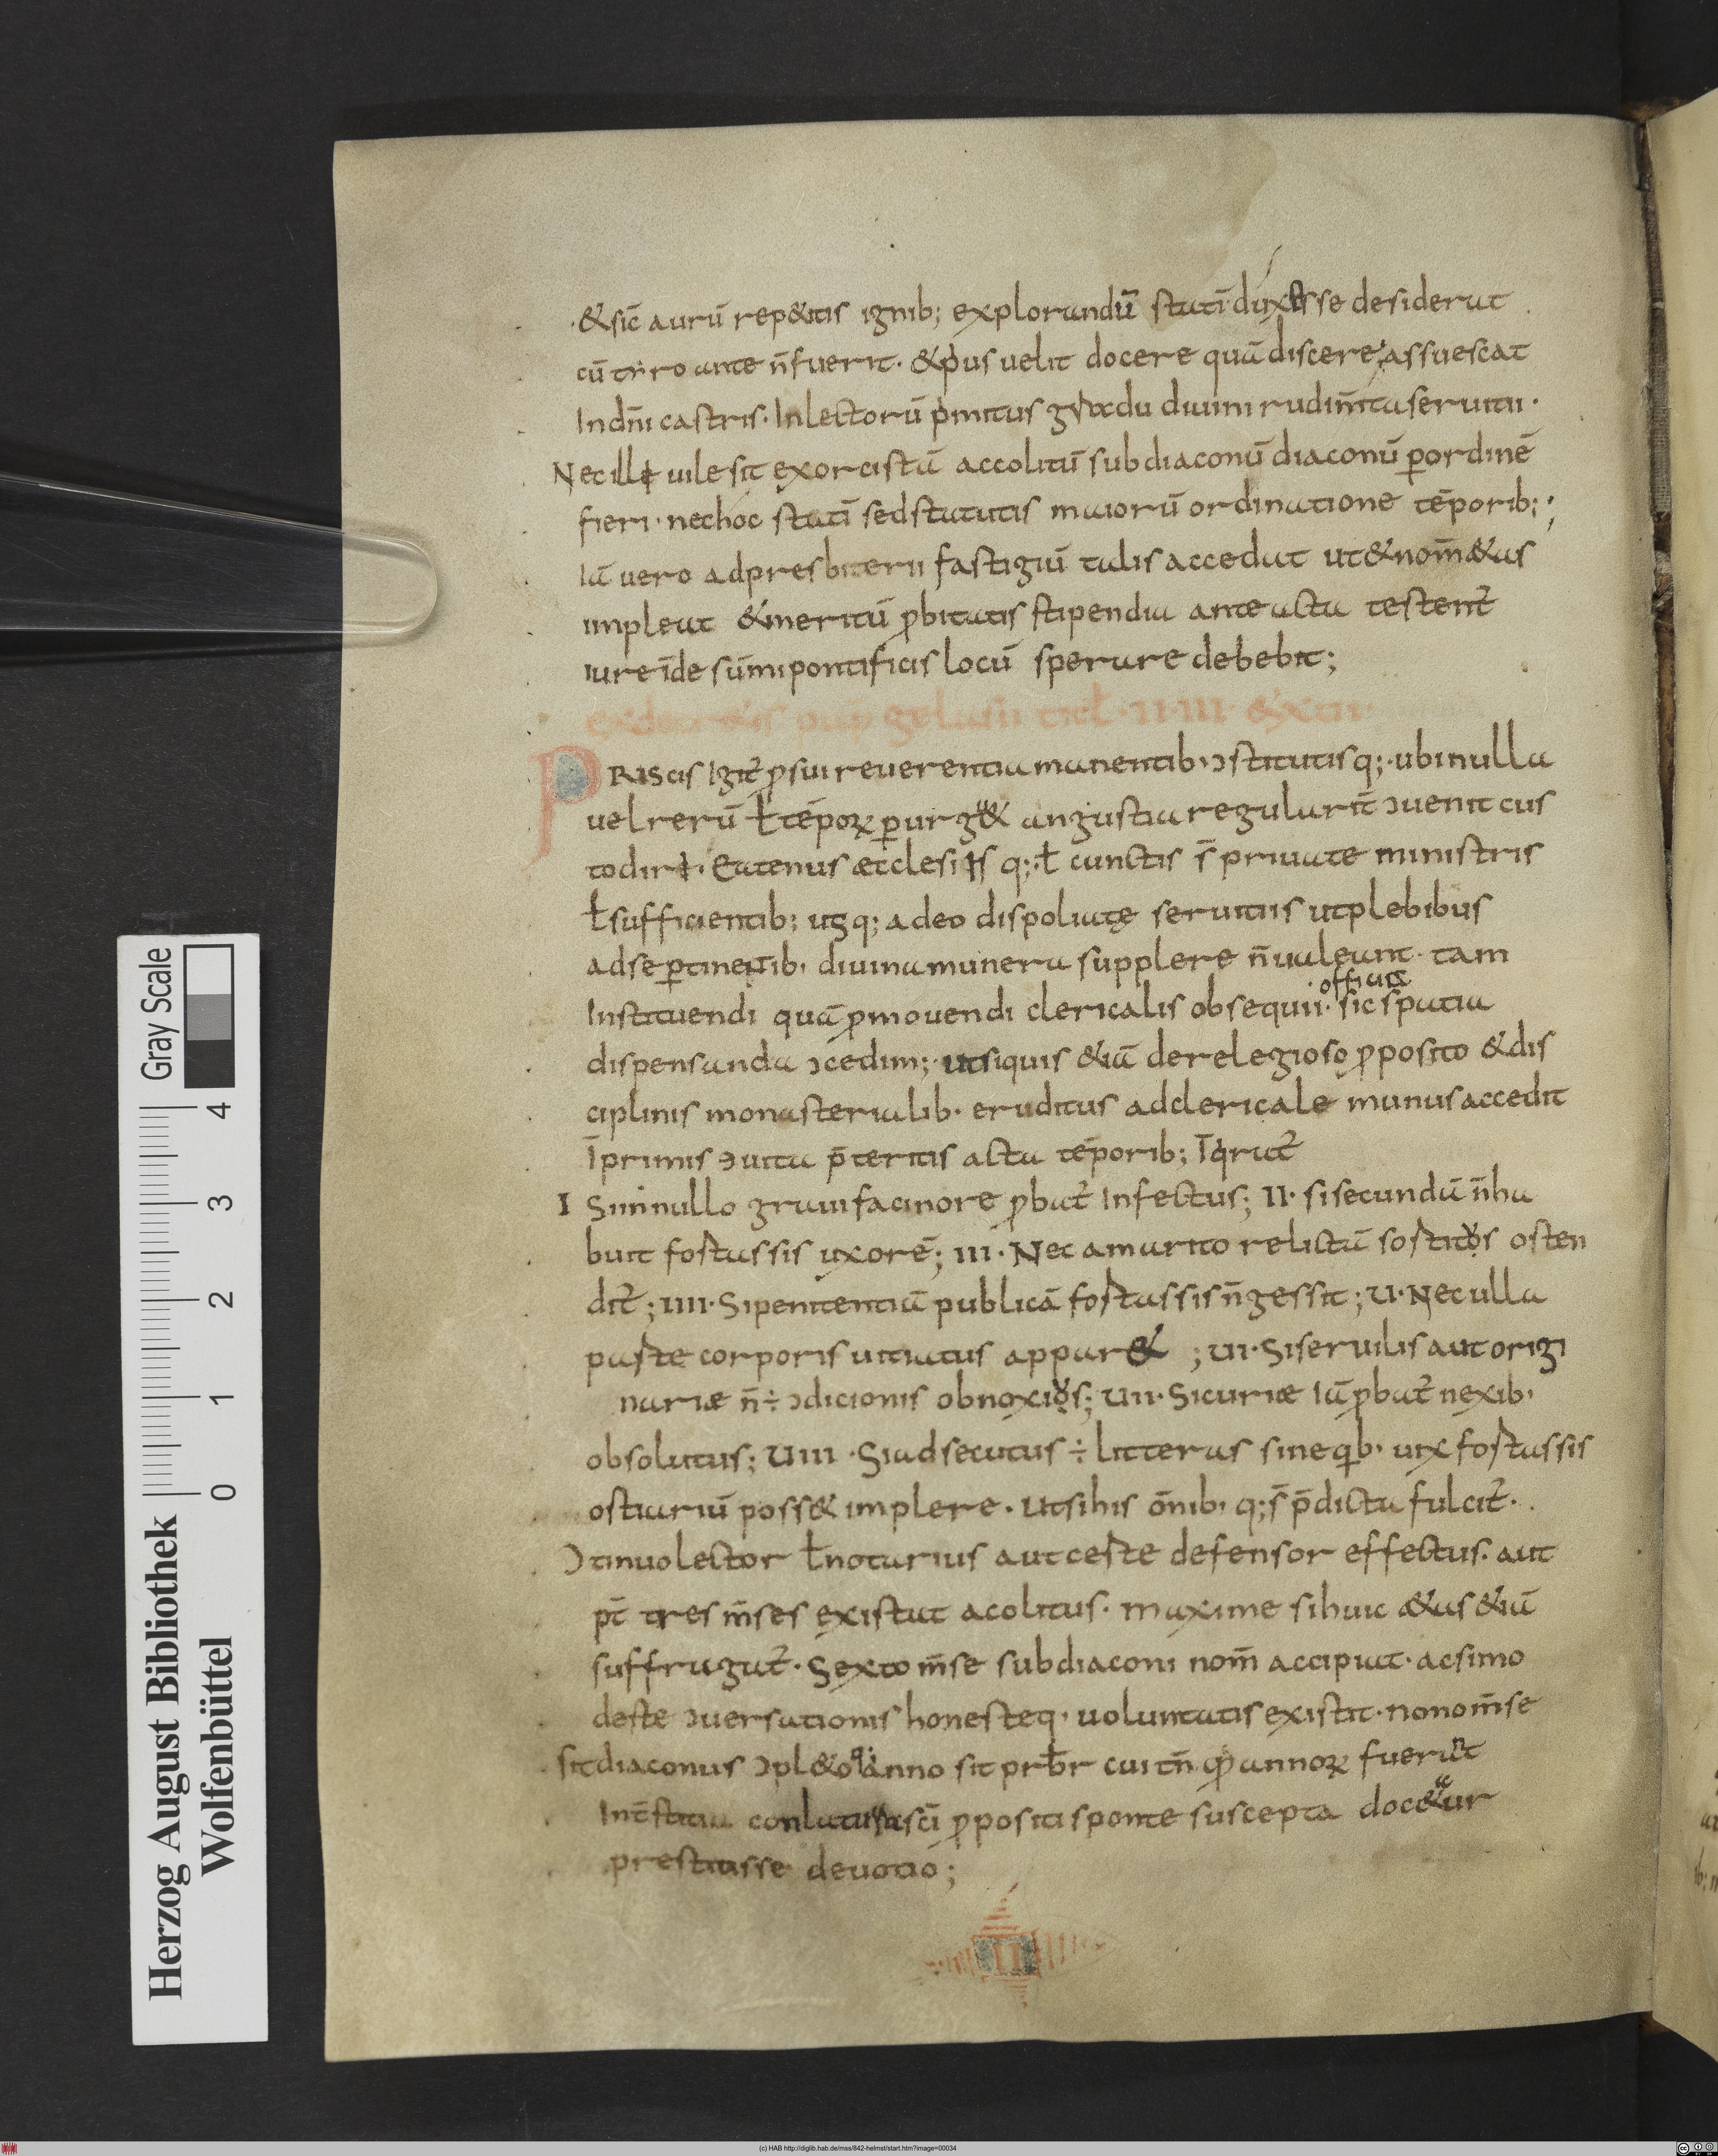 &sic̄ aurū rep&itis ignib; explorandū statī dux esse desiderat
cū tiro ante n̄ fuerit· &p̄us uelit docere quā discere; assuescat
Indn̄i castris· In lectorū p̄mitus gradu diuini rudim̄ta seruitii·
Nec illi uile sit exorcistā accolitū subdiaconū diaconū ꝑordinē
fieri· nec hoc statī sed statutis maiorū ordinatione tēporib;;
Iā uero ad presbiterii fastigiū talis accedat ut&nom̄ &as
impleat &meritū ꝓbitatis stipendia ante acta testent̄
iure īde sūmi pontificis locū sperare debebit;
ex decr&is pap̄ gelasii titł· II· III· &XIII·
PRIScis Igit̄ ꝓsui reuerentia manentib· ɔstitutisq;· ubi nulla
uel rerū ł tēporꝝ ꝑurg& angustia regularit̄ ɔuenit cus
todiri· Eatenus æcclesiis q;·ł cunctis s̄ priuate ministris
ł sufficientib; usq; adeo dispoliatę seruitiis ut plebibus
ad se ꝑtinentib· diuina munera supplere n̄ ualeant· tam
officiis
Instituendi quā ꝓmouendi clericalis obsequii· sic spatia
dispensanda ɔcedim;· ut siquis &iā de relegioso ꝓposito &dis
ciplinis monasterialib· eruditus ad clericale munus accedit
īprimis ɔuita p̄teritis acta tēporib; īqrat̄
I Sin nullo graui facinore ꝓbat̄ Infectus; II· si secundā n̄ ha
buit fortassis uxorē; III· Nec a marito relictā sortitos osten
dit̄; IIII· Si penitentiā publicā fortassis n̄ gessit; U· Nec ulla
parte corporis uitiatus appar& ; UI· Si seruilis aut origi
nariæ n̄ ÷ ɔdicionis obnoxios; UII· Si curiæ Iā ꝓbat̄ nexib·
obsolutus; UIII· Si adsecutus ÷ litteras sine qib· uix fortassis
ostiariū poss& implere· ut si his ōnib· q; s̄ p̄dicta fulcit̄·
Ɔtinuo lector ł notarius aut certe defensor effectus· aut
pt̄ tres m̄ses existat acolitus· maxime si huic &as &iā
suffragat̄· Sexto m̄se subdiaconi nom̄ accipiat· ac si mo
deste ɔuersationis honesteq· uoluntatis existit· nono m̄se
sit diaconus ɔpl&oq; anno sit prb̄r cui tn̄ qđ annoꝝ fuerant
Int̄stitia conlatura sc̄i ꝓpositi sponte suscepta doc&ur
prestitisse deuotio;
II
Herzog August Bibliothek
Wolfenbüttel
0 1 2 3 4
Gray Scale
(c) HAB http://diglib.hab.de/mss/842-helmst/start.htm?image=00034